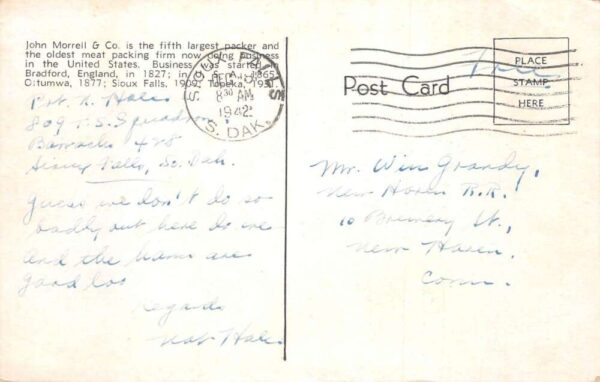 John Morrell & Co. is the fifth largest packer and
the oldest meat packing firm now doing business
in the United States. Business was started in
Bradford, England, in 1827; in U. S. A., 1865;
Ottumwa, 1877; Sioux Falls, 1909; Topeka, 1931.
Pvt. R. Hales
809 T.S. Squadron
Barracks 428
Sioux Falls, So. Dak.
Guess we don't do so
badly out here do we
and the hams are
good too
Regards
Hales
SIOUX FALLS
8 30 AM
1942
S. DAK.
Free
Post Card
PLACE
STAMP
HERE
Mr. Win Grandy,
New Haven R.R.
10 Brewery St.,
New Haven.
Conn.